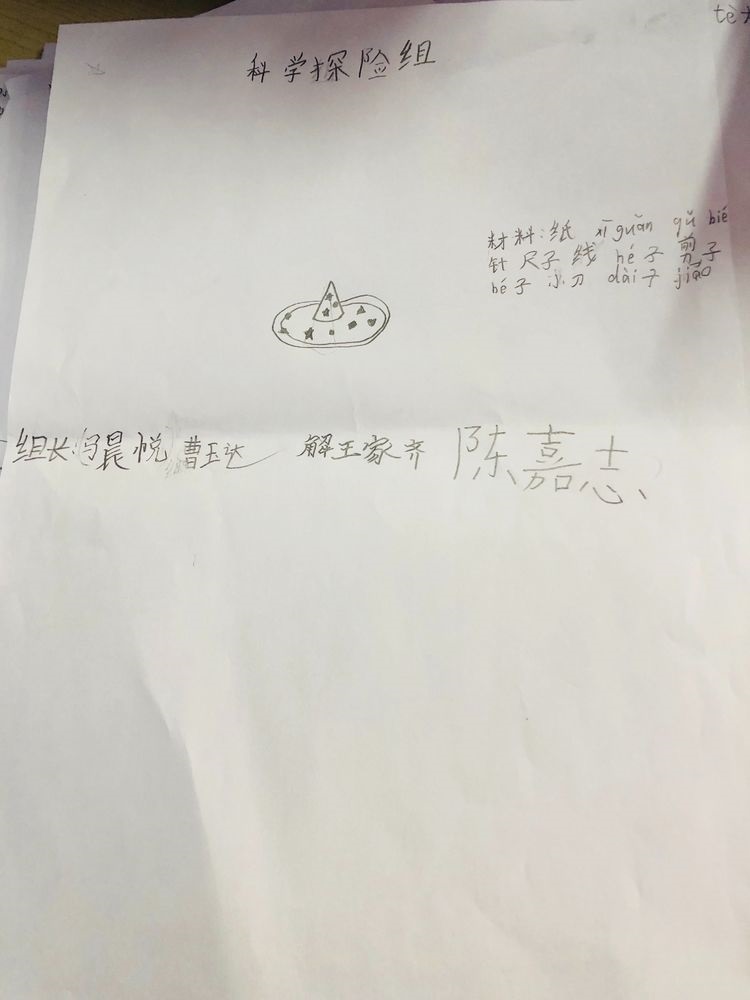 科学探险组
材料:纸 xīguǎn qǔ bié
针 尺子 线 hé子 剪子
hé子 小刀 dài子 jiāo
组长:冯晨悦 曹玉达 解王家齐 陈嘉志